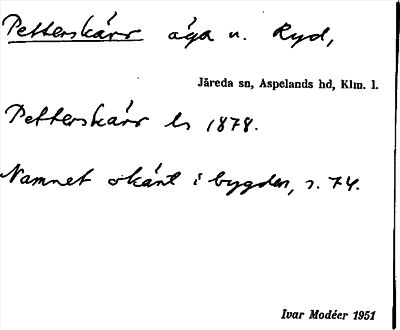 Petterskärr äga u. Ryd,
Järeda sn, Aspelands hd, Klm. l.
Petterskärr ls 1878.
Namnet okänt i bygden, s. 74.
Ivar Modéer 1951